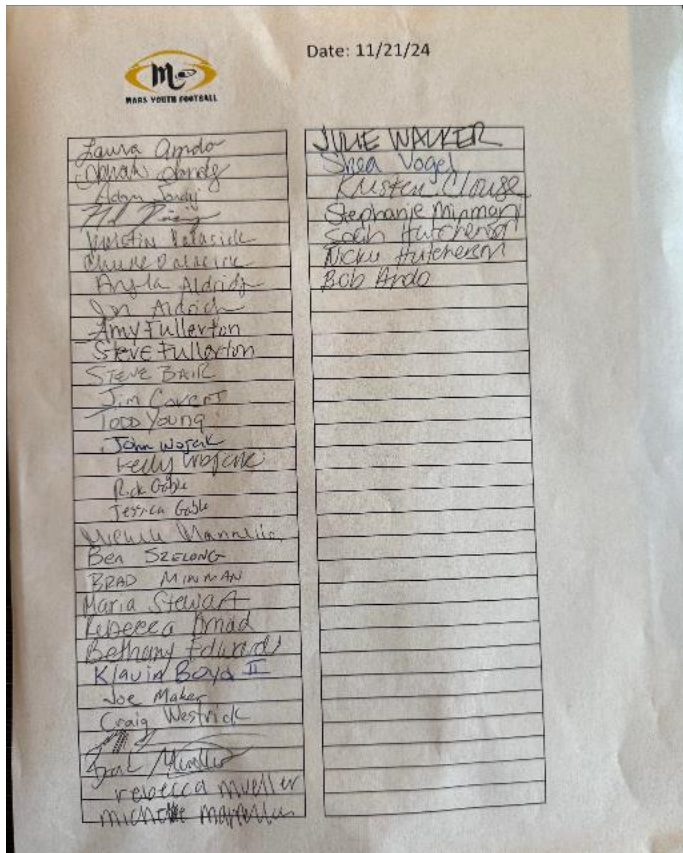 Date: 11/21/24
M
MARS YOUTH FOOTBALL
Laura Ando
Adam
Kristin Palasick
Palasick
Angela Aldridge
Jon Aldrich
Amy Fullerton
Steve Fullerton
STEVE BAIR
Jim Covert
TODD Young
John Wojcik
Kelly Wojcik
Rick Gable
Jessica Gable
Michele
Ben SZELONG
BRAD MINMAN
Maria Stewart
Rebecca
Bethany Edwards
Klavin Boyd II
Joe Maker
Craig Westrick
Mueller
rebecca mueller
michele
JULIE WALKER
Shea Vogel
Kristen Clouse
Stephanie Minman
Hutcherson
Nicky Hutcherson
Bob Ando